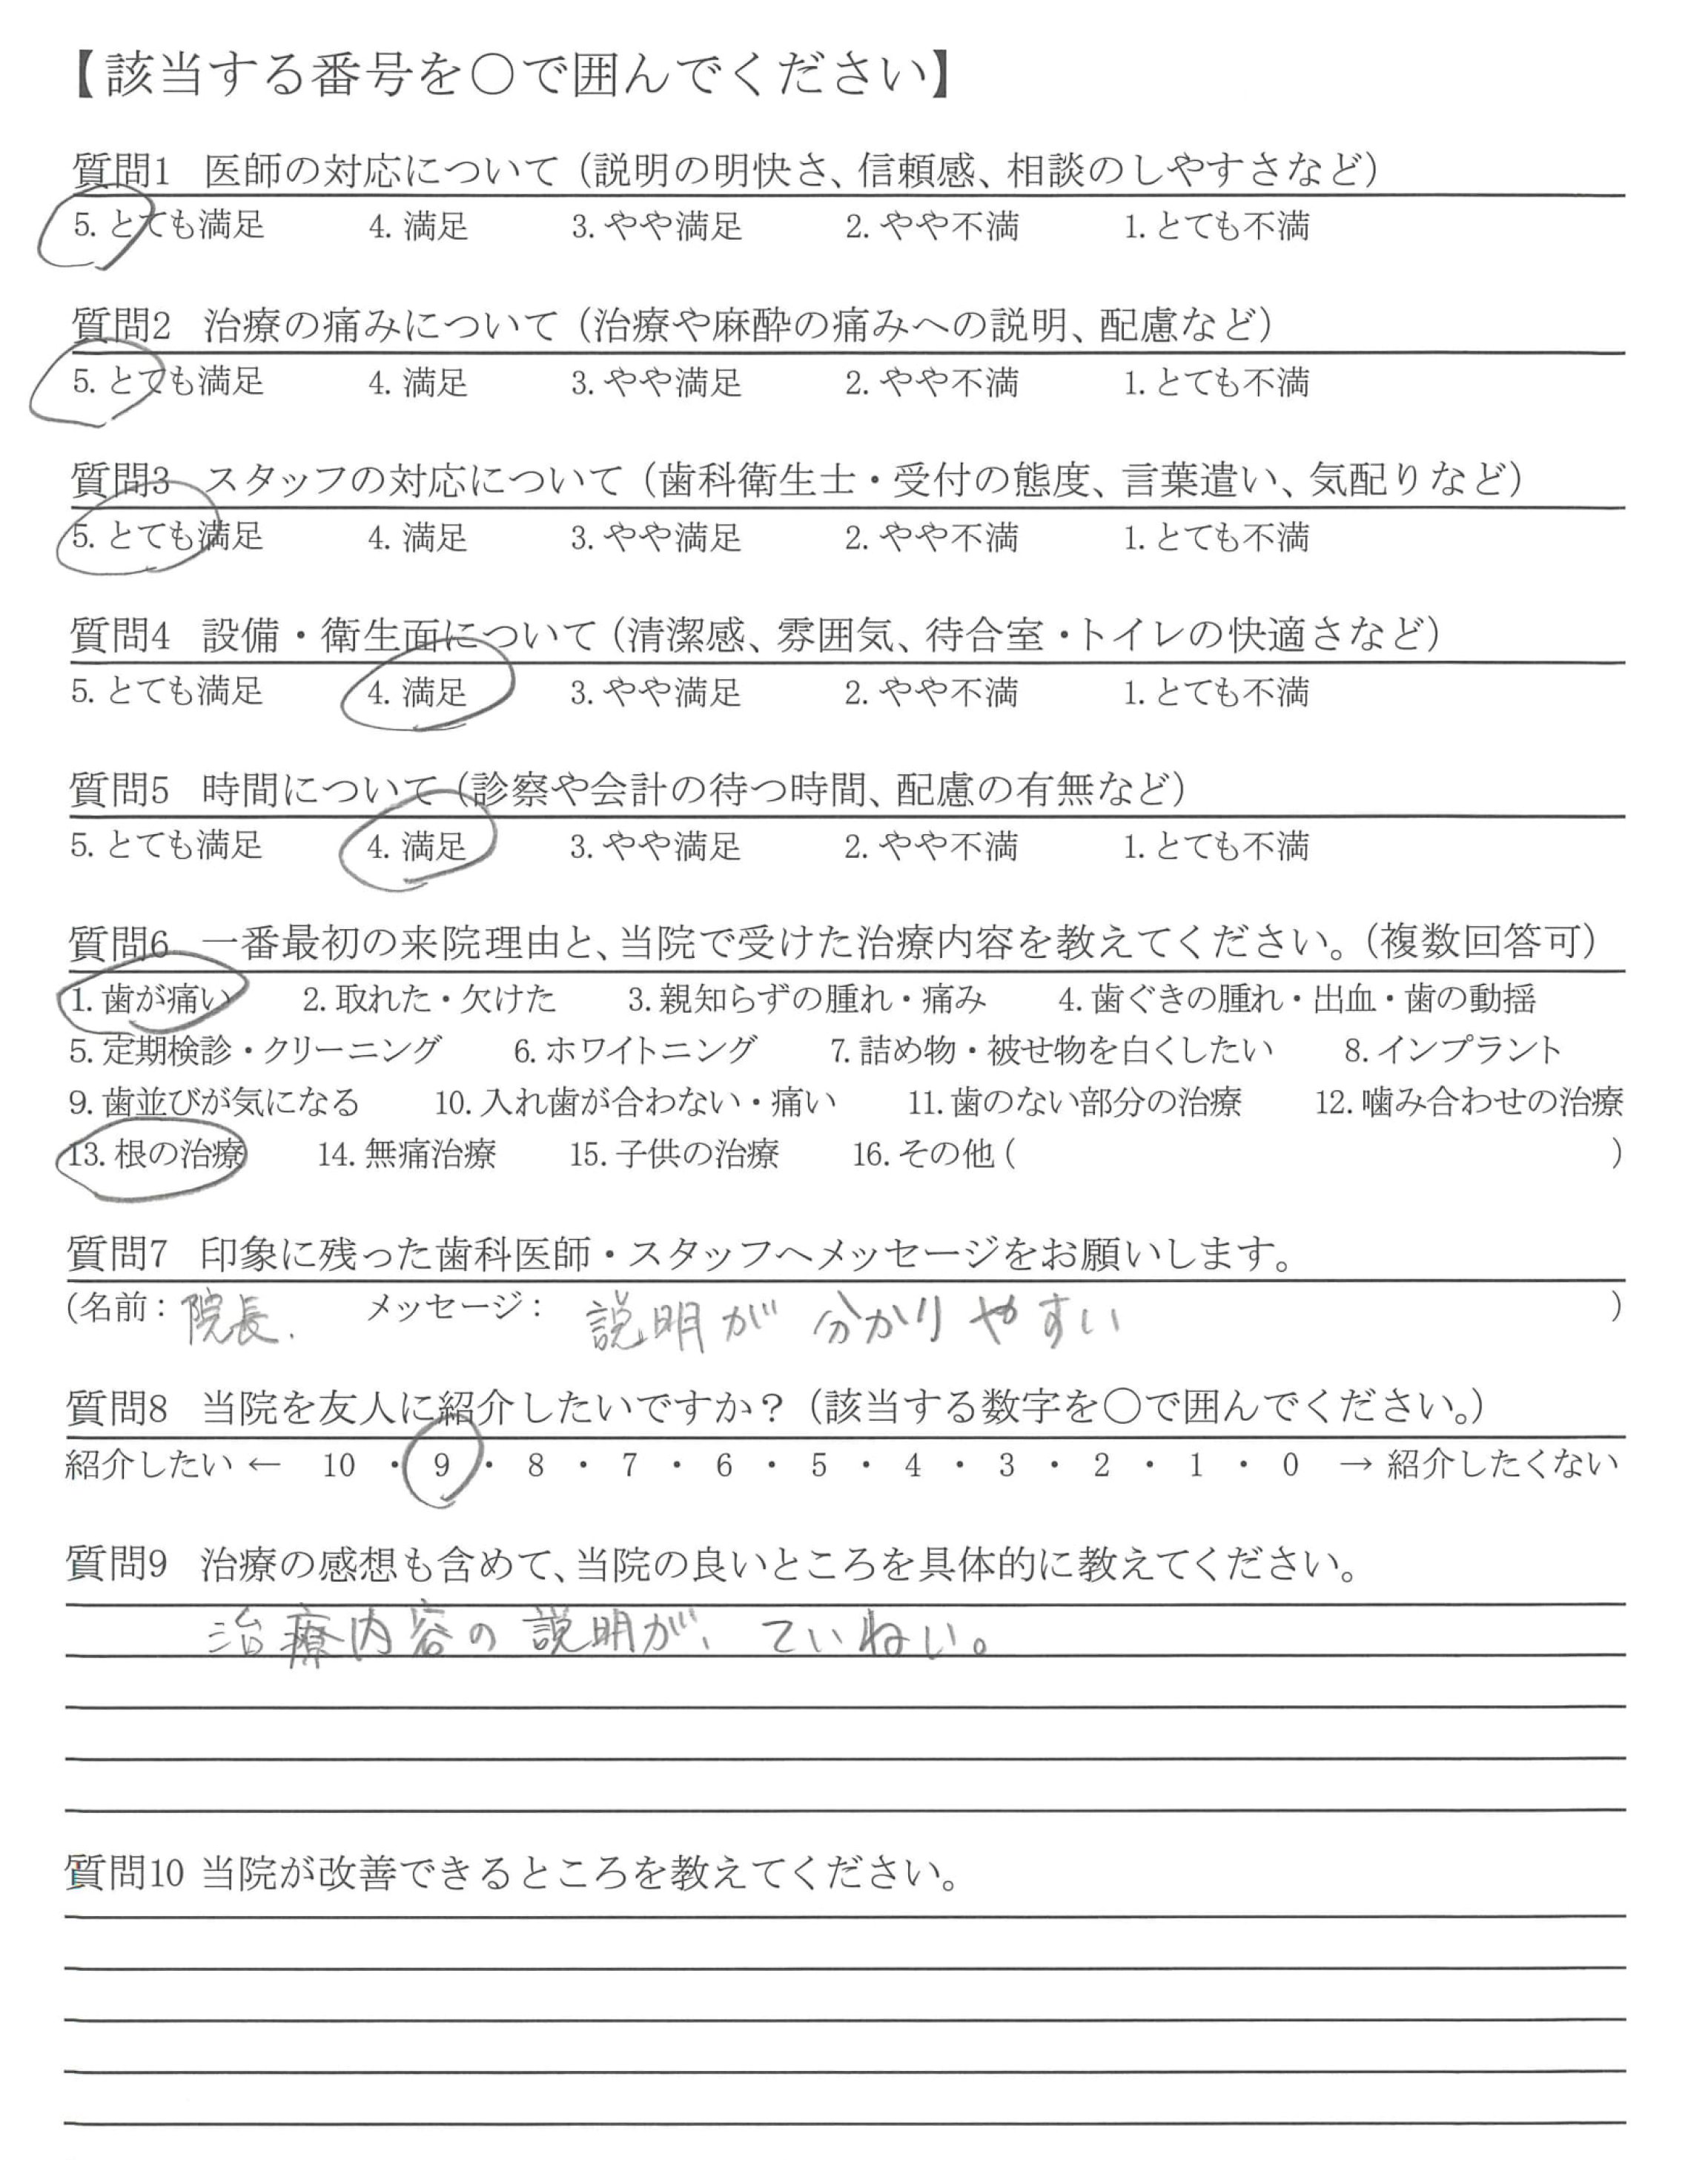 【該当する番号を〇で囲んでください】
質問1 医師の対応について（説明の明快さ、信頼感、相談のしやすさなど）
5. とても満足 4. 満足 3. やや満足 2. やや不満 1. とても不満
質問2 治療の痛みについて（治療や麻酔の痛みへの説明、配慮など）
5. とても満足 4. 満足 3. やや満足 2. やや不満 1. とても不満
質問3 スタッフの対応について（歯科衛生士・受付の態度、言葉遣い、気配りなど）
5. とても満足 4. 満足 3. やや満足 2. やや不満 1. とても不満
質問4 設備・衛生面について（清潔感、雰囲気、待合室・トイレの快適さなど）
5. とても満足 4. 満足 3. やや満足 2. やや不満 1. とても不満
質問5 時間について（診察や会計の待つ時間、配慮の有無など）
5. とても満足 4. 満足 3. やや満足 2. やや不満 1. とても不満
質問6 一番最初の来院理由と、当院で受けた治療内容を教えてください。（複数回答可）
1. 歯が痛い 2. 取れた・欠けた 3. 親知らずの腫れ・痛み 4. 歯ぐきの腫れ・出血・歯の動揺
5. 定期検診・クリーニング 6. ホワイトニング 7. 詰め物・被せ物を白くしたい 8. インプラント
9. 歯並びが気になる 10. 入れ歯が合わない・痛い 11. 歯のない部分の治療 12. 噛み合わせの治療
13. 根の治療 14. 無痛治療 15. 子供の治療 16. その他 ( )
質問7 印象に残った歯科医師・スタッフへメッセージをお願いします。
(名前： 院長. メッセージ： 説明が 分かりやすい )
質問8 当院を友人に紹介したいですか？（該当する数字を〇で囲んでください。）
紹介したい ← 10 ・ 9 ・ 8 ・ 7 ・ 6 ・ 5 ・ 4 ・ 3 ・ 2 ・ 1 ・ 0 → 紹介したくない
質問9 治療の感想も含めて、当院の良いところを具体的に教えてください。
治療内容の説明が、ていねい。
質問10 当院が改善できるところを教えてください。